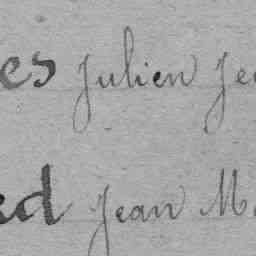 es Julien Je
ed Jean M